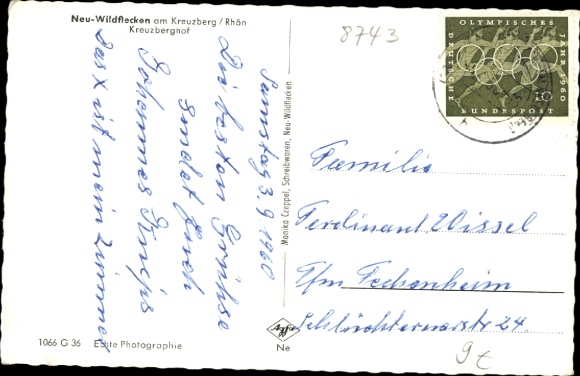 Neu-Wildflecken am Kreuzberg/Rhön
Kreuzberghof
8743
OLYMPISCHES
JAHR 1960
DEUTSCHE
BUNDESPOST
10
Samstag 3.9.1960
Die besten Grüße
sendet Euch
Johannes
Das X ist mein Zimmer
Monika Czeppel, Schreibwaren, Neu-Wildflecken
Familie
Ferdinand Wissel
Ffm Fechenheim
Schlüchternerstr 24.
Agfa
Ne
1066 G 36 Echte Photographie